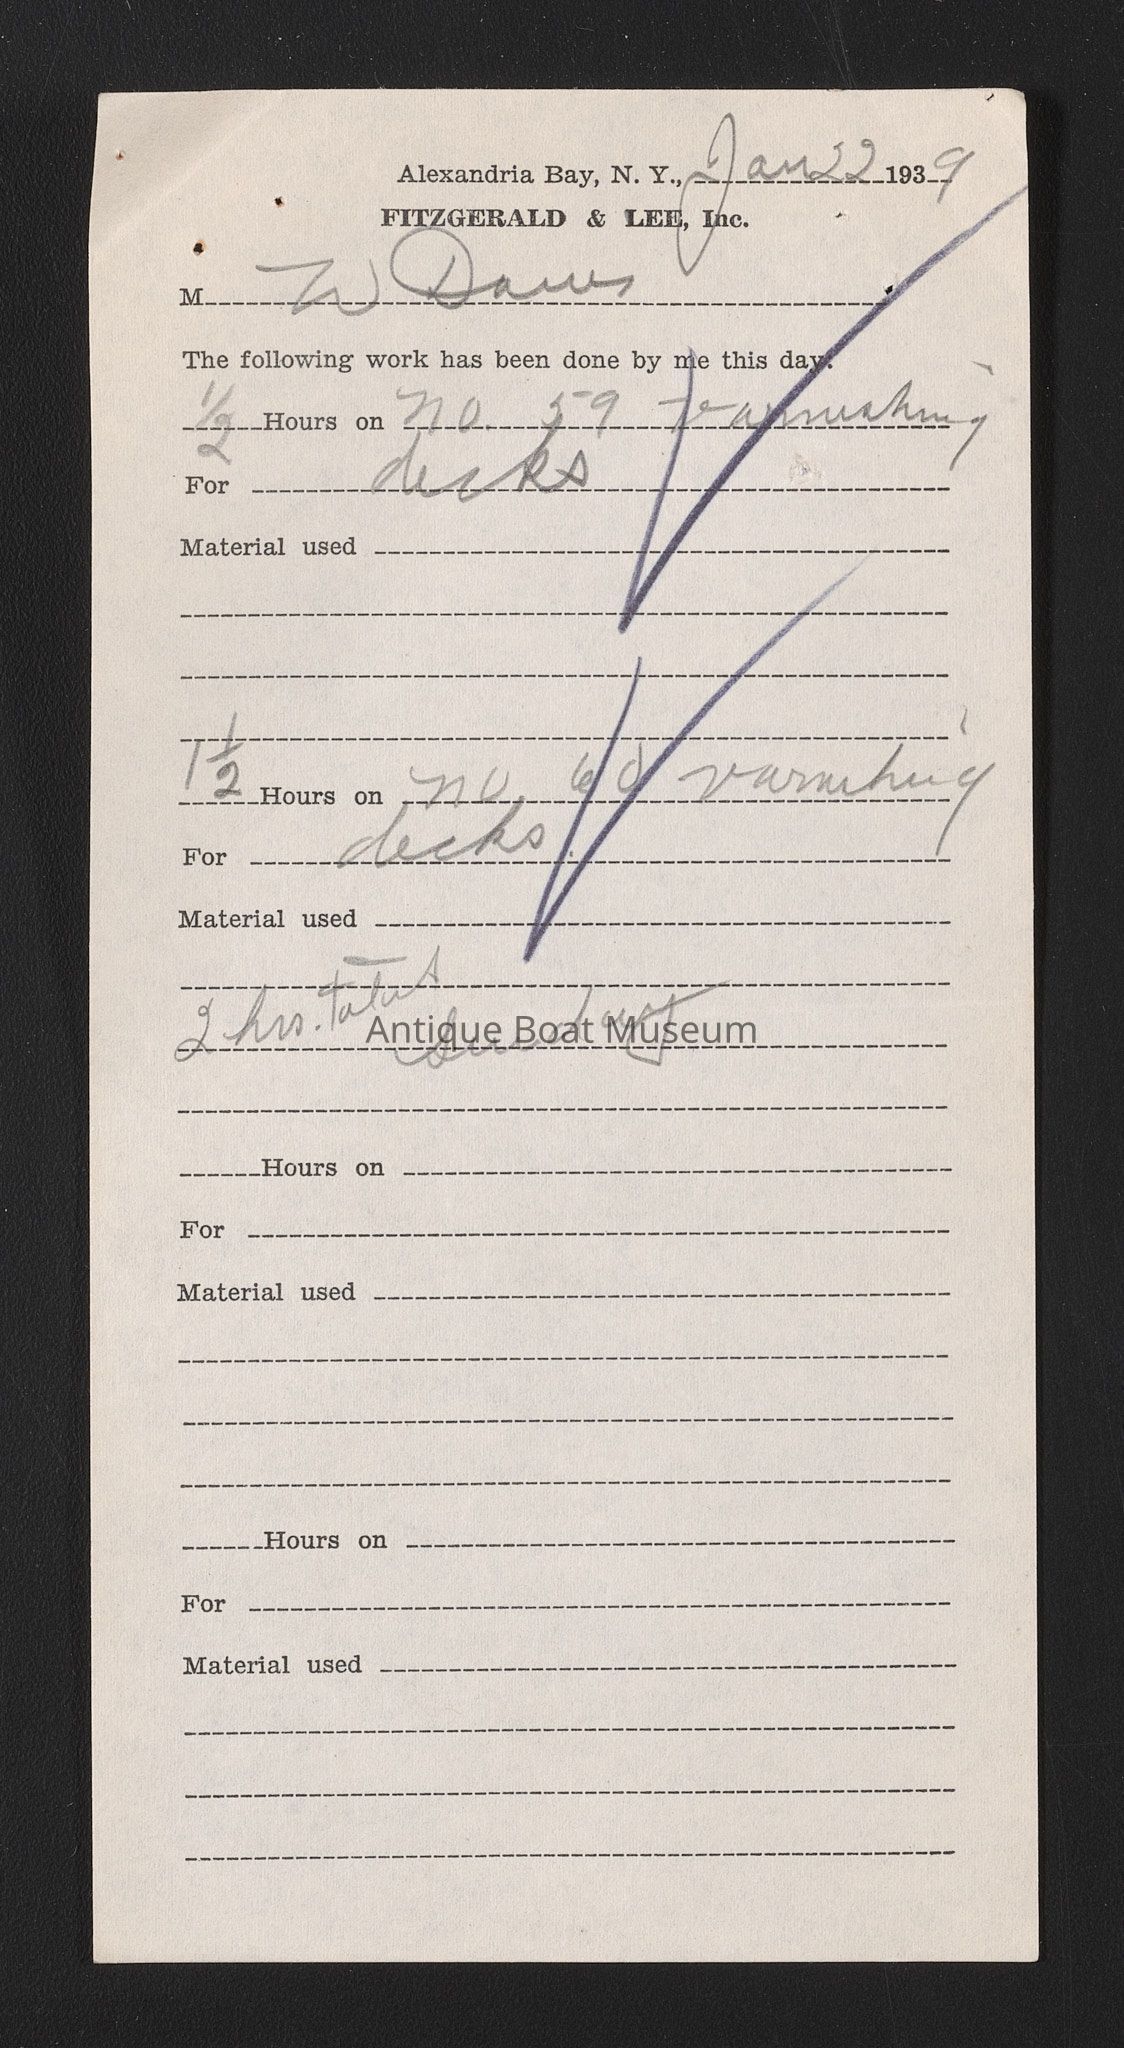 Alexandria Bay, N. Y., Jan 22 1939
FITZGERALD & LEE, Inc.
M W Daws
The following work has been done by me this day:
1/2 Hours on No. 59 varnishing
For decks
Material used
1 1/2 Hours on No. 60 varnishing
For decks
Material used
2 hrs. total
Sunday
Antique Boat Museum
Hours on
For
Material used
Hours on
For
Material used